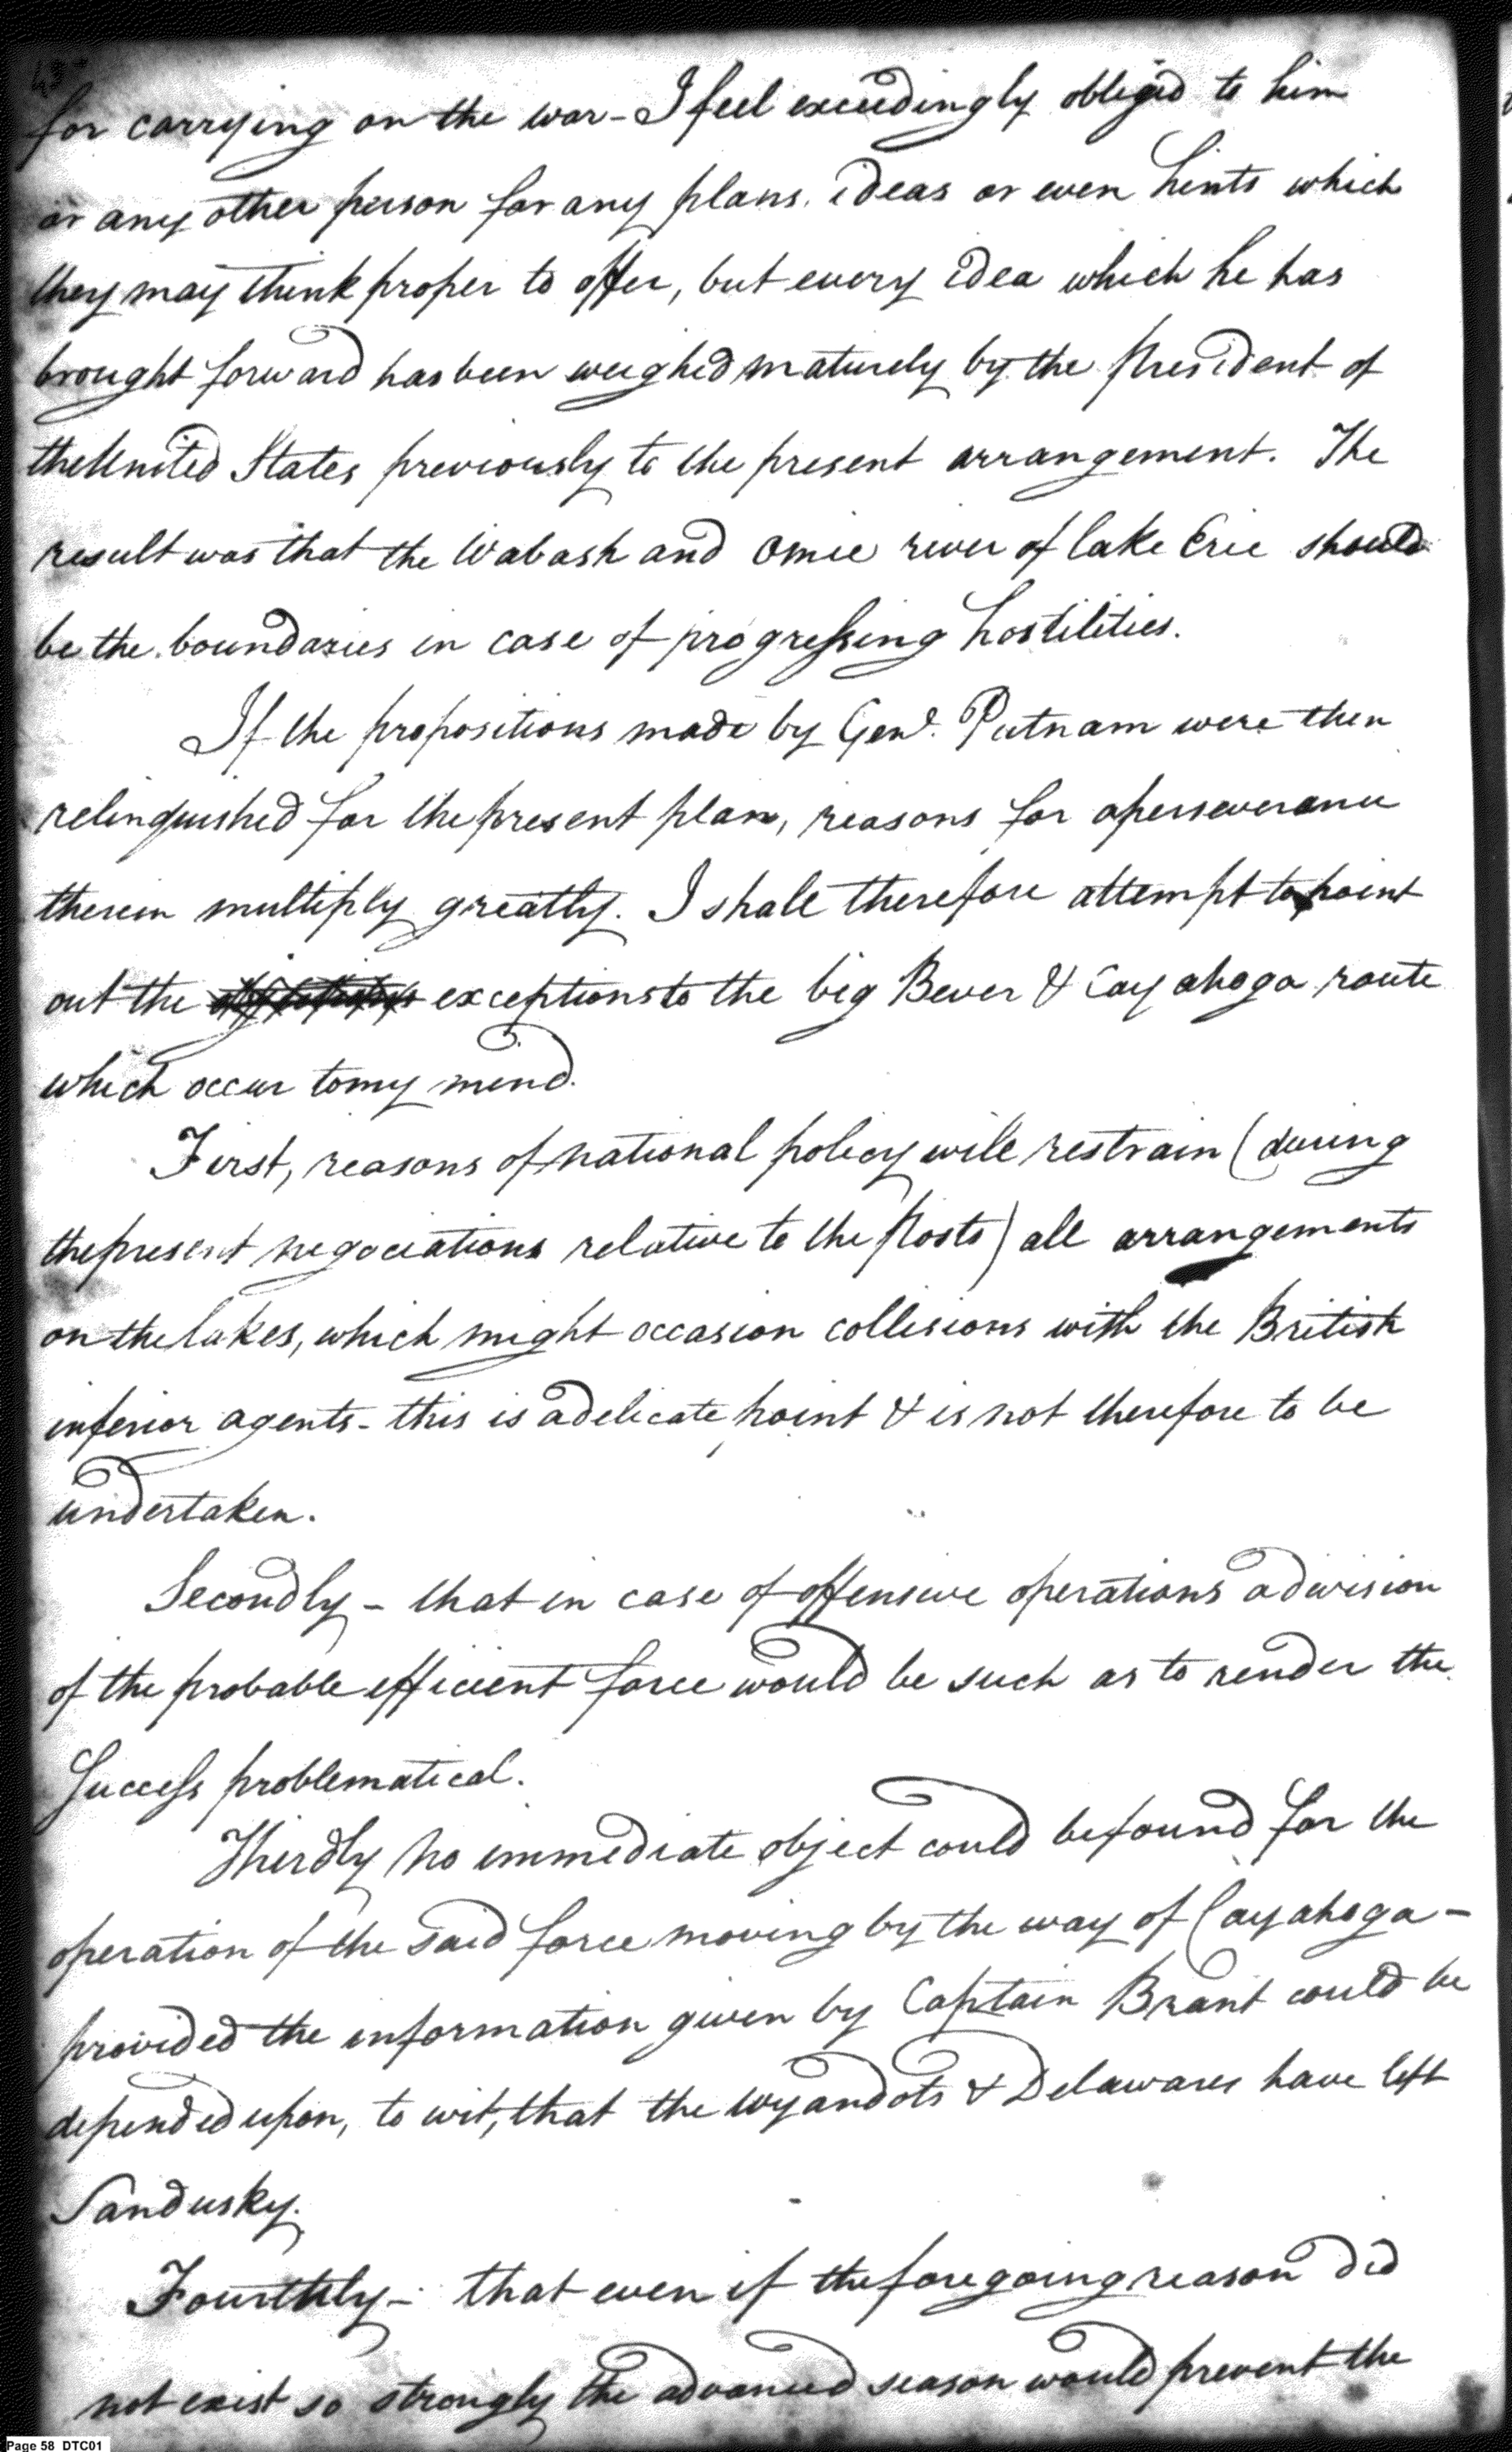 for carrying on the war - I feel exceedingly obliged to him
or any other person for any plans, ideas or even hints which
they may think proper to offer, but every idea which he has
brought forward has been weighed maturely by the President of
the United States previously to the present arrangement. The
result was that the Wabash and Omie river of lake Erie should
be the boundaries in case of progressing hostilities.
If the propositions made by Genl. Putnam were then
relinquished for the present plan, reasons for a perseverance
therein multiply greatly. I shall therefore attempt to point
out the exceptions to the big Bever & Cayahoga route
which occur to my mind.
First, reasons of national policy will restrain (during
the present negociations relative to the Posts) all arrangements
on the lakes, which might occasion collisions with the British
inferior agents - this is a delicate point & is not therefore to be
undertaken.
Secondly - that in case of offensive operations a division
of the probable efficient force would be such as to render the
Success problematical.
Thirdly no immediate object could be found for the
operation of the said force moving by the way of Cayahoga -
provided the information given by Captain Brant could be
depended upon, to wit, that the Wyandots & Delawares have left
Sandusky.
Fourthly - that even if the foregoing reason did
not exist so strongly the advanced season would prevent the
Page 58 DTC01